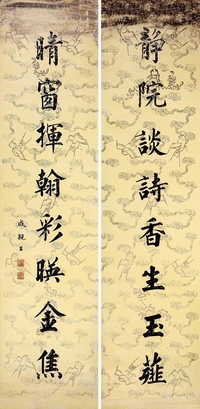 靜院談詩香生玉薤
晴窗揮翰彩暎金焦
成親王